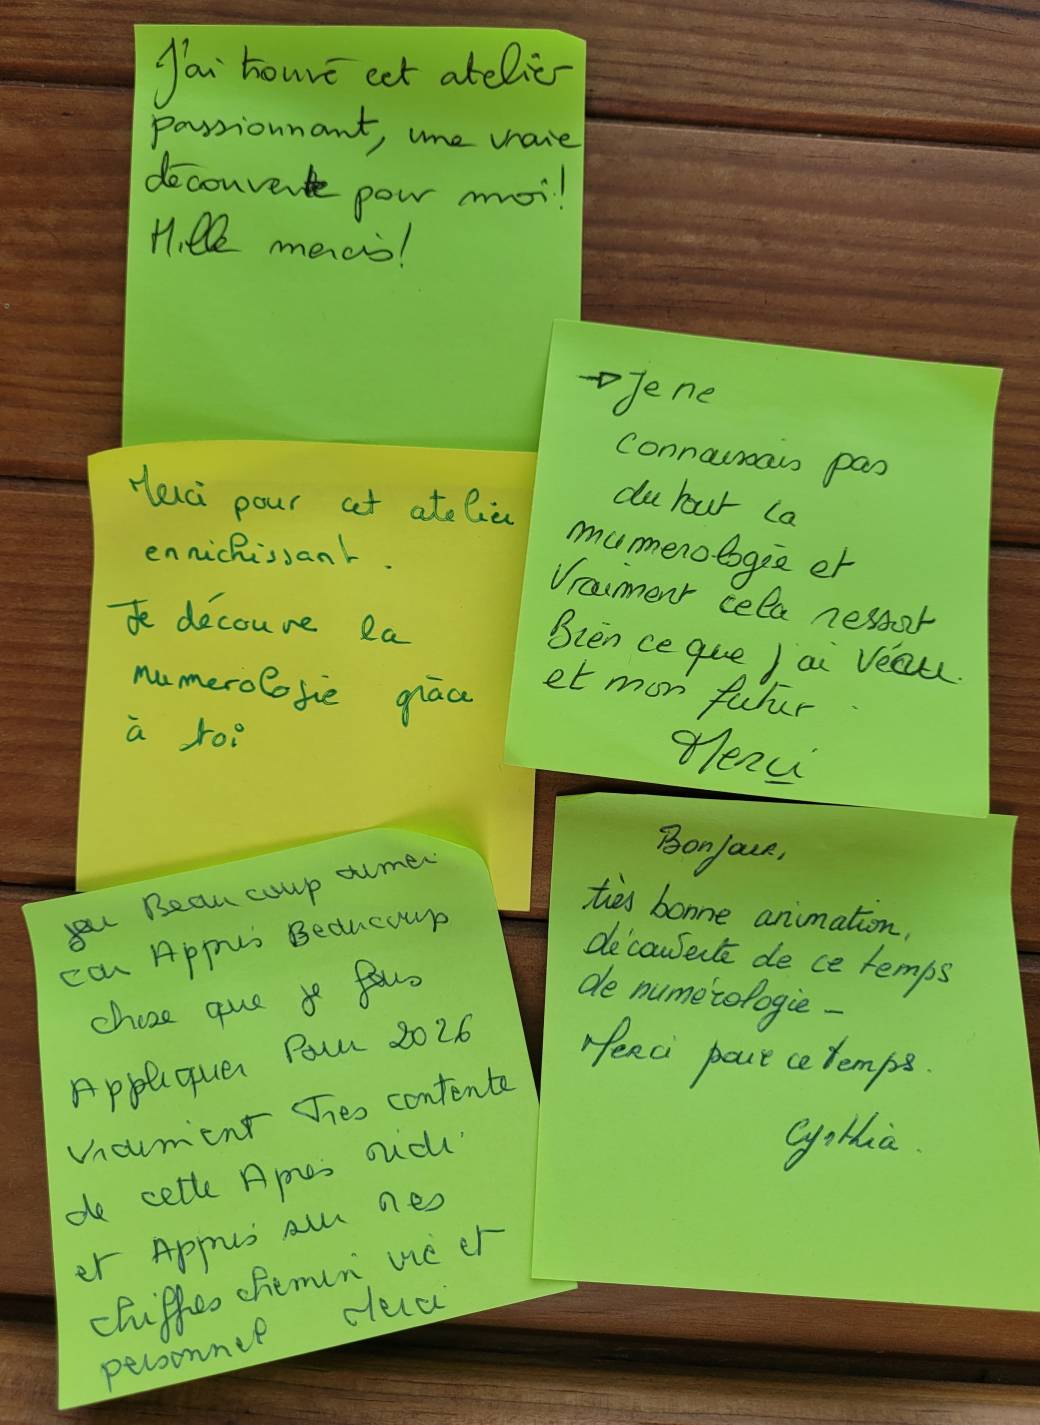 J'ai trouvé cet atelier
passionnant, une vraie
découverte pour moi!
Mille mercis!
→ Je ne
connaissais pas
du tout la
numerologie et
Vraiment cela ressort
Bien ce que j'ai Vécu.
et mon futur.
Merci
Merci pour cet atelier
enrichissant.
Je découvre la
numerologie grâce
à toi
Bonjour,
très bonne animation,
découverte de ce temps
de numérologie -
Merci pour ce temps.
Cynthia.
Beaucoup aimer
car Appris Beaucoup
chose que je fais
Appliquer Pour 2026
Vraiment Très contente
de cette Après midi
et Appris sur mes
chiffres chemin vie et
personnel Merci